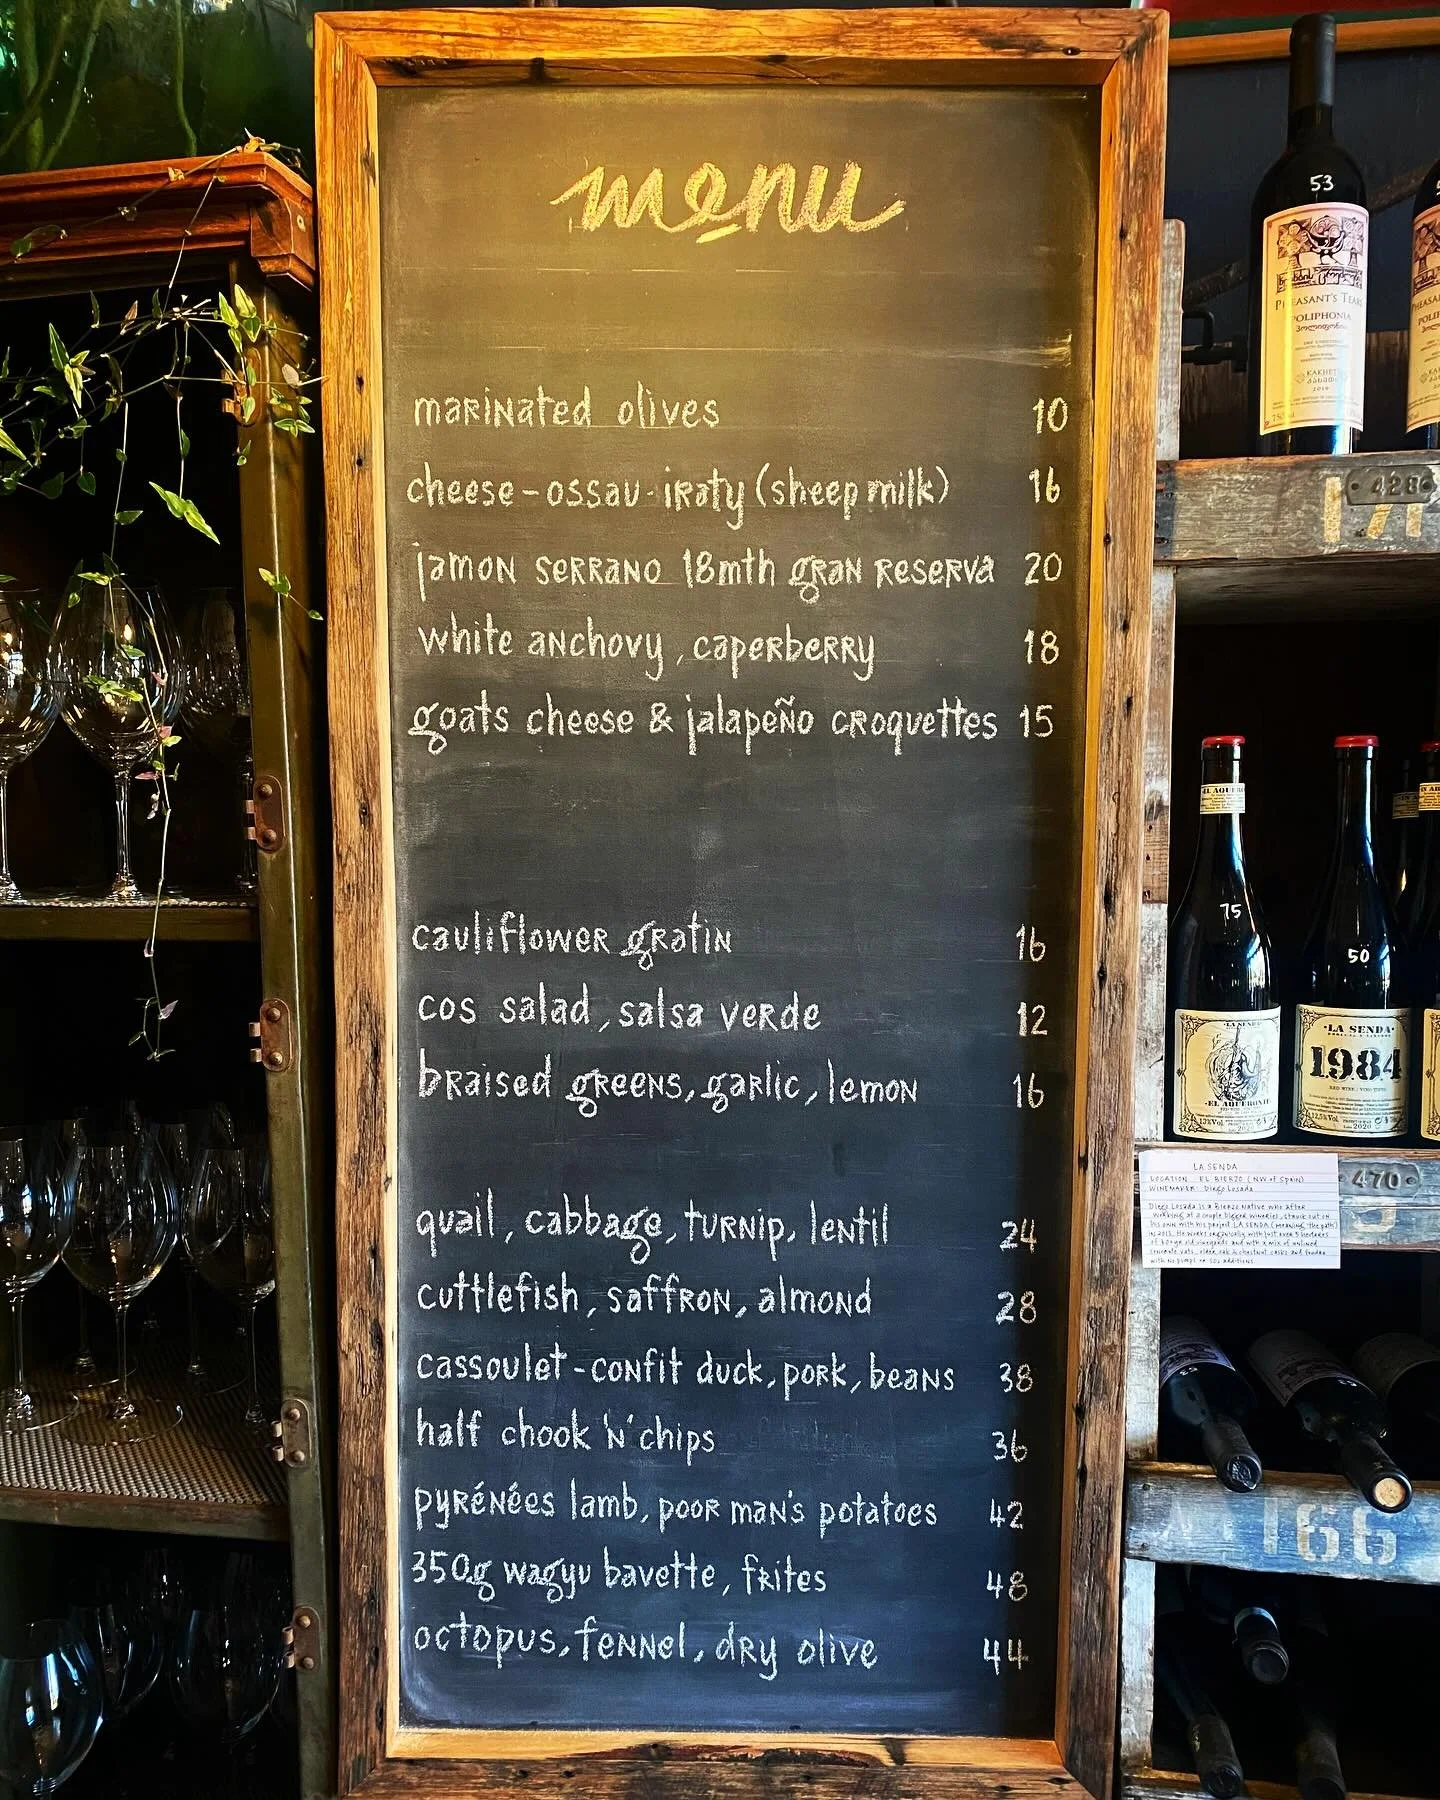 menu
marinated olives 10
cheese - ossau - iraty (sheep milk) 16
jamon serrano 18mth gran reserva 20
white anchovy, caperberry 18
goats cheese & jalapeño croquettes 15
cauliflower gratin 16
cos salad, salsa verde 12
braised greens, garlic, lemon 16
quail, cabbage, turnip, lentil 24
cuttlefish, saffron, almond 28
cassoulet - confit duck, pork, beans 38
half chook 'n' chips 36
pyrénées lamb, poor man's potatoes 42
350g wagyu bavette, frites 48
octopus, fennel, dry olive 44
53
PHEASANT'S TEARS
POLIPHONIA
KAKHETI
2019
428
75
50
LA SENDA
EL AQUERONTE
LA SENDA
1984
RED WINE
2020
2020
470
LA SENDA
LOCATION: EL BIERZO (NW of SPAIN)
WINEMAKER: Diego Losada
Diego Losada is a Bierzo native who after
working at a couple bigger wineries, struck out on
his own with his project LA SENDA (meaning 'the path')
in 2013. He works organically with just over 5 hectares
166